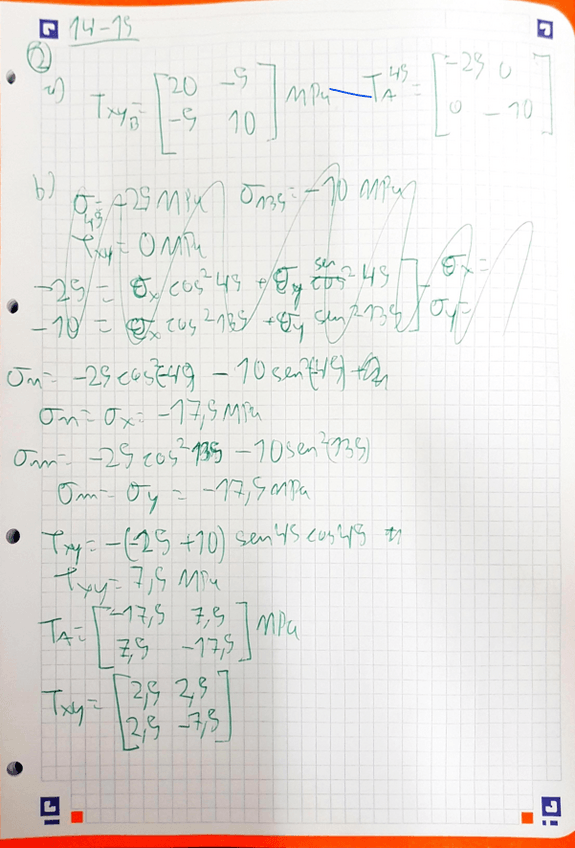 14-15
②
a) T_xyB = [20 -5; -5 10] MPa — T_A^45 = [-25 0; 0 -10]
b) σ_45 = -25 MPa σ_135 = -10 MPa
τ_xy = 0 MPa
-25 = σ_x cos² 45 + σ_y sen² 45 ] σ_x =
-10 = σ_x cos² 135 + σ_y sen² 135 ] σ_y =
σ_n = -25 cos²(-45) - 10 sen²(-45)
σ_n = σ_x = -17,5 MPa
σ_m = -25 cos² 135 - 10 sen²(135)
σ_m = σ_y = -17,5 MPa
τ_xy = -(-25 + 10) sen 45 cos 45
τ_xy = 7,5 MPa
T_A = [-17,5 7,5; 7,5 -17,5] MPa
T_xy = [2,5 2,5; 2,5 -7,5]